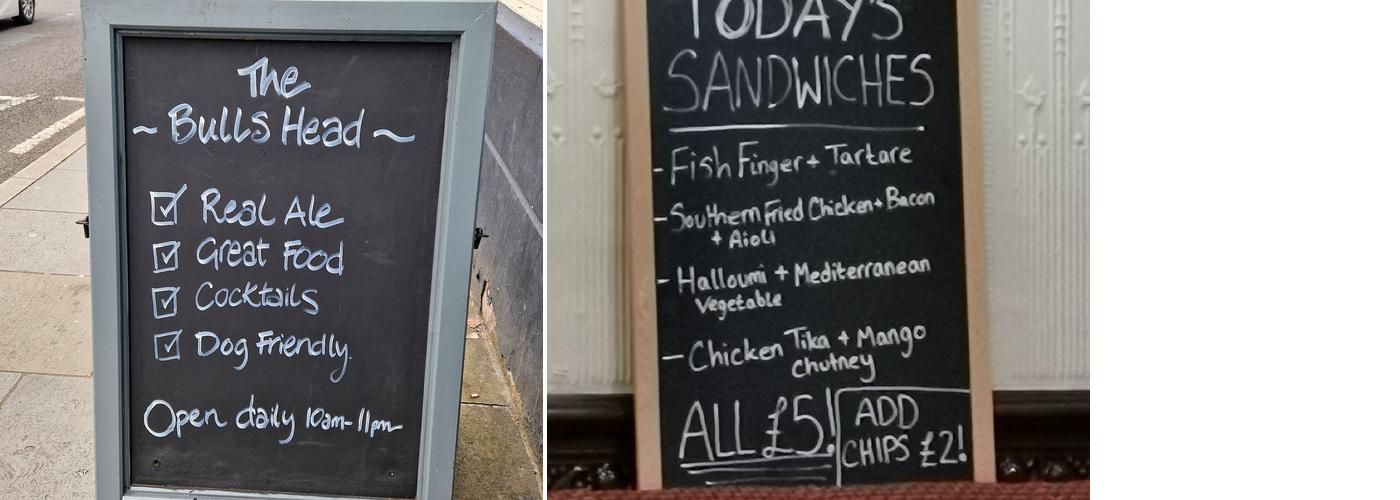 The
~ Bulls Head ~
☑ Real Ale
☑ Great Food
☑ Cocktails
☑ Dog Friendly.
Open daily 10am-11pm
TODAY'S
SANDWICHES
- Fish Finger + Tartare
- Southern Fried Chicken + Bacon
+ Aioli
- Halloumi + Mediterranean
Vegetable
- Chicken Tika + Mango
Chutney
ALL £5!
ADD
CHIPS £2!